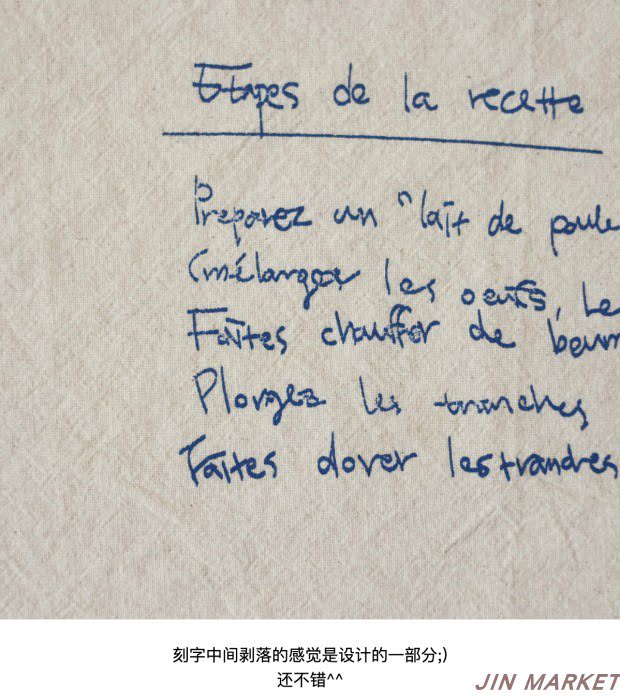 Etapes de la recette
Preparez un "lait de poule
(mélangez les oeufs, Le
Faites chauffer de beurr
Plongez les tranches
Faites dorer les tranches
刻字中间剥落的感觉是设计的一部分;)
还不错^^
JIN MARKET